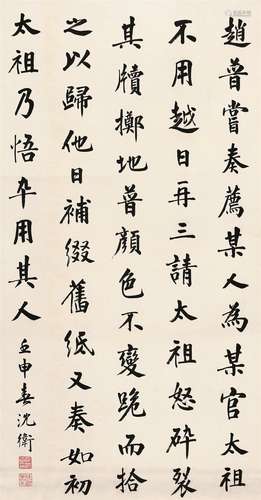 趙普嘗奏薦某人為某官太祖
不用越日再三請太祖怒碎裂
其牘擲地普顏色不變跪而拾
之以歸他日補綴舊紙又奏如初
太祖乃悟卒用其人
壬申春沈衛